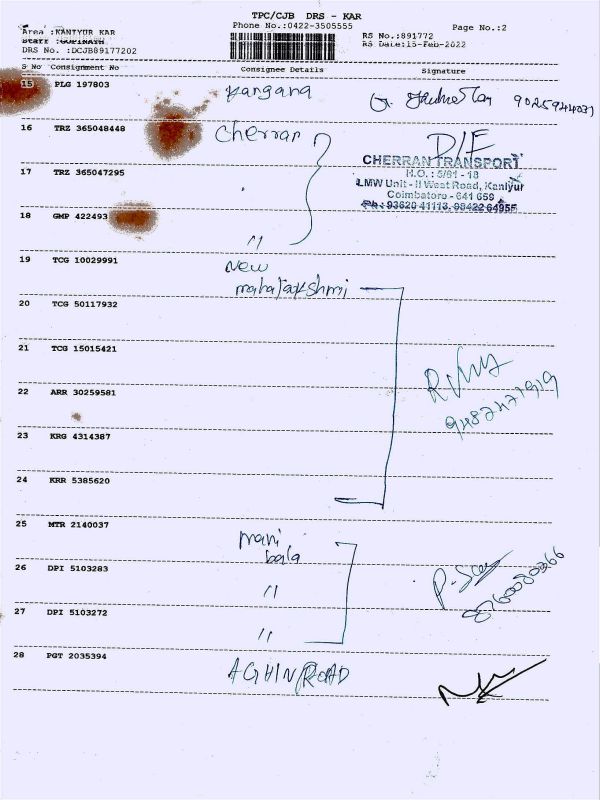 TPC/CJB DRS - KAR
Phone No.:0422-3505555
Page No.:2
Area :KANIYUR KAR
Staff :GOPINATH
DRS No. :DCJB89177202
RS No.:891772
RS Date:15-Feb-2022
S No Consignment No Consignee Details Signature
15 PLG 197803 90259
16 TRZ 365048448 Cherran D/E
CHERRAN TRANSPORT
H.O. : 5/61 - 18
LMW Unit - II West Road, Kaniyur
Coimbatore - 641 659
Ph: 93620 41113, 98422 64955
17 TRZ 365047295
18 GMP 422493
"
19 TCG 10029991 New
mahalakshmi
20 TCG 50117932
21 TCG 15015421
22 ARR 30259581
23 KRG 4314387
24 KRR 5385620
25 MTR 2140037 mani
bala
26 DPI 5103283 "
27 DPI 5103272 "
28 PGT 2035394 ROAD